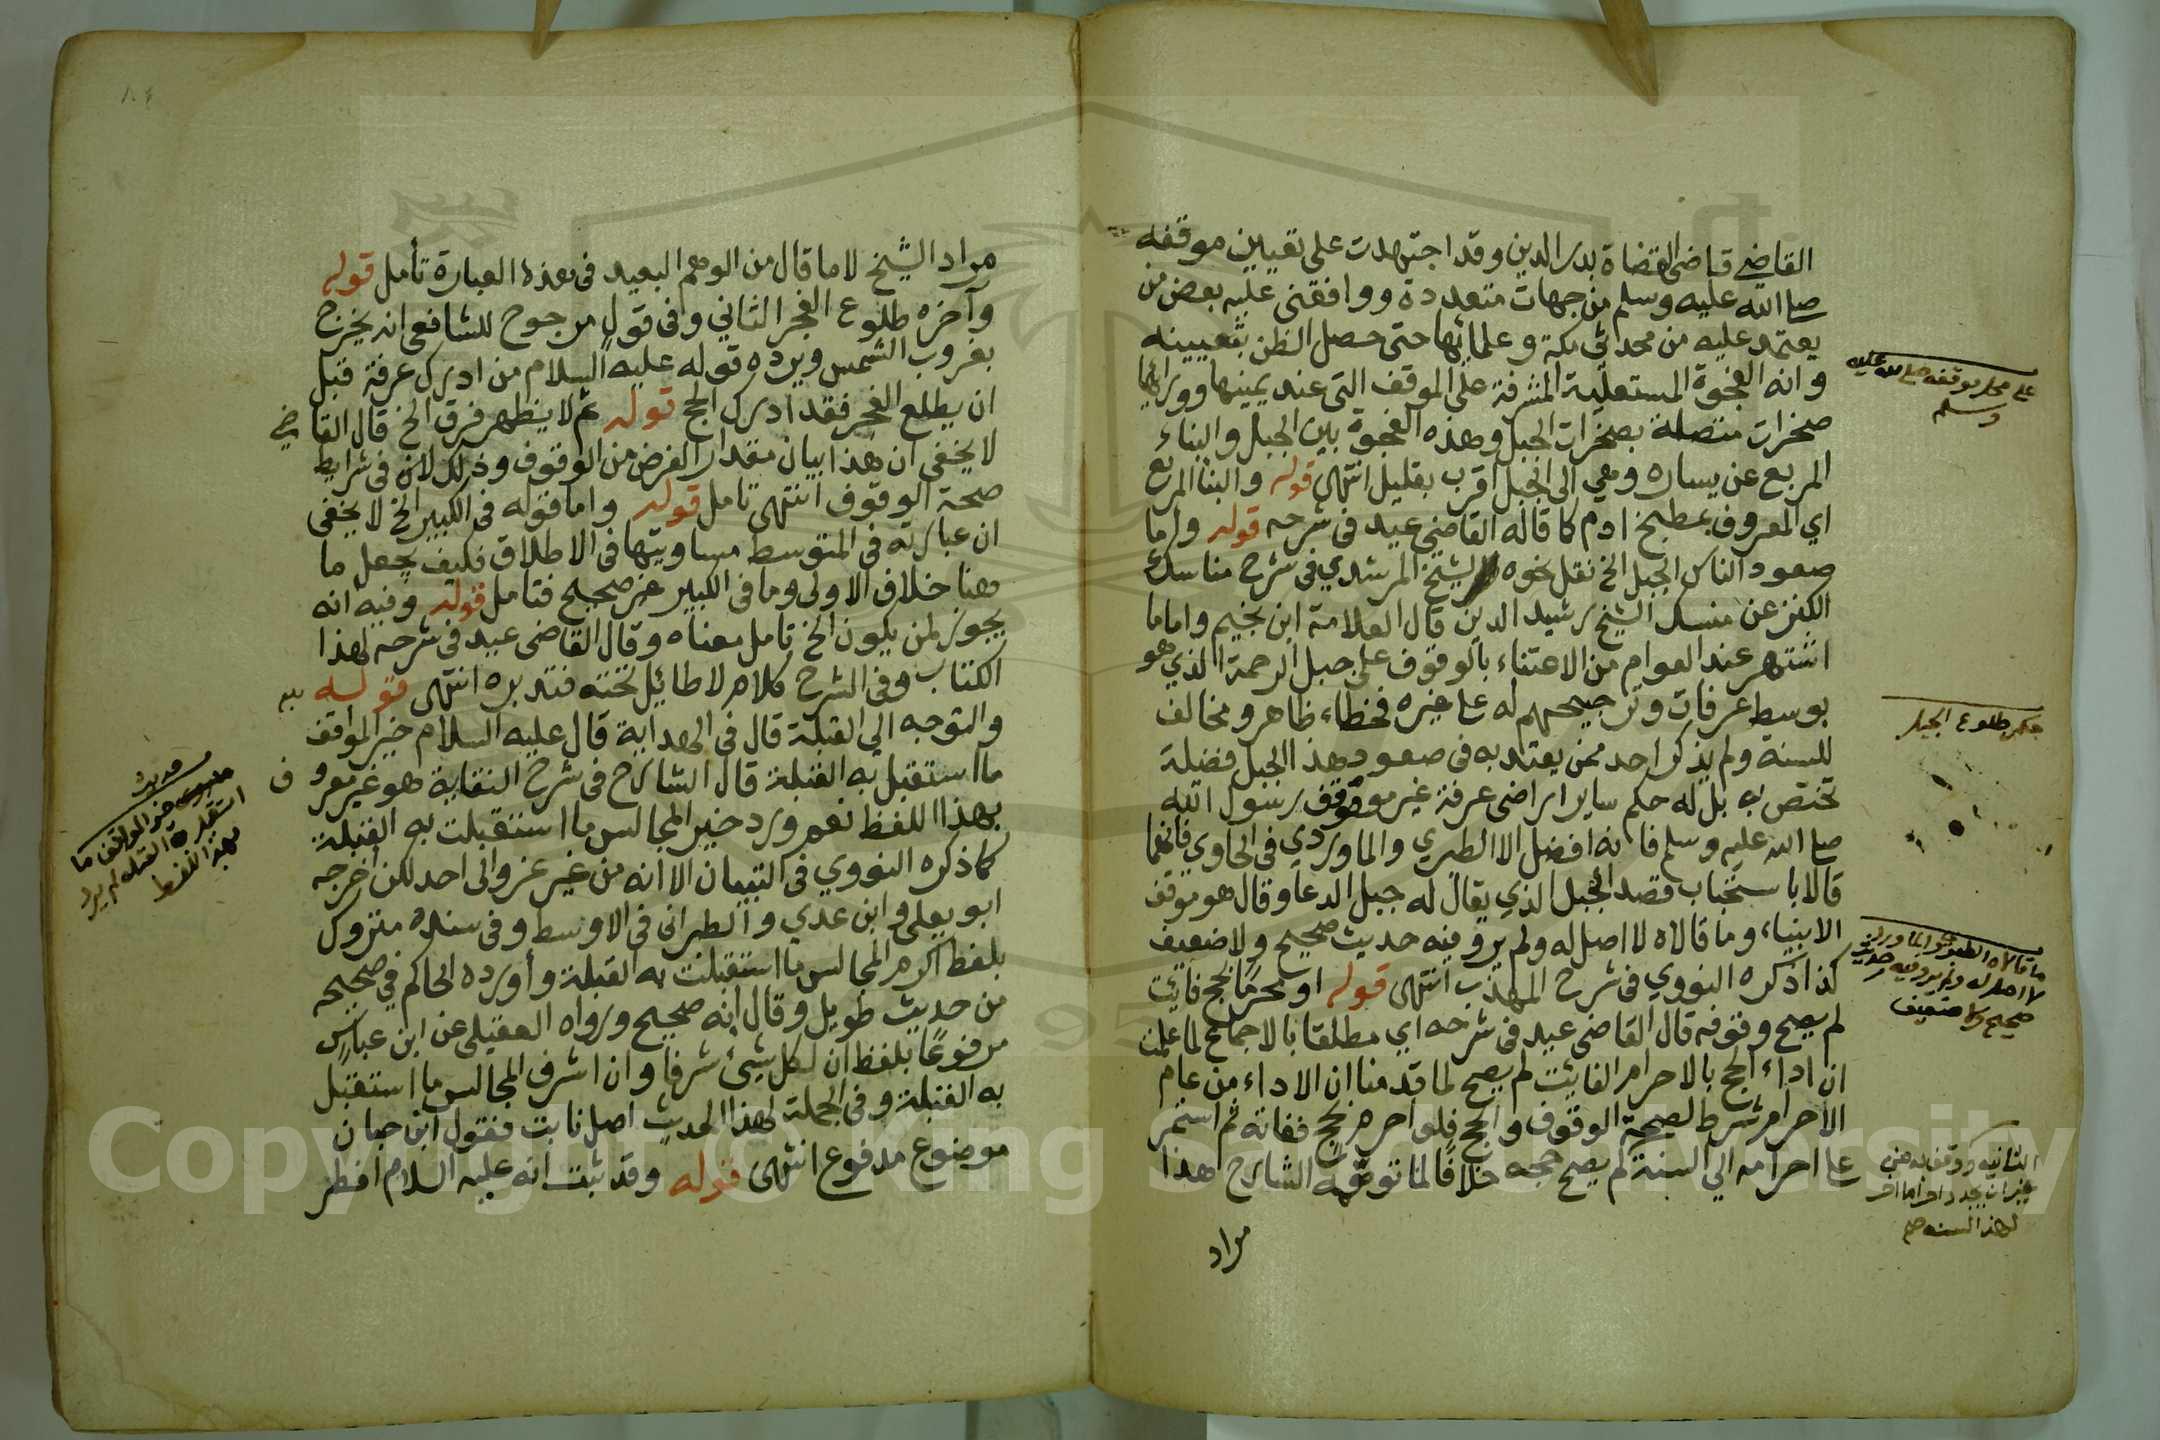 القاضي قاضي القضاة بدر الدين وقد اجتهدت على تعيين موقفه
صلى الله عليه وسلم من جهات متعددة ووافقني عليه بعض من
يعتمد عليه من محدثي مكة وعلمائها حتى حصل الظن بتعيينه
وانه الفجوة المستعلية المشرفة على الموقف التي عند يمينها وورائها
صخرات متصلة بصخرات الجبل وهذه الفجوة بين الجبل والبناء
المربع عن يساره وهي الى الجبل اقرب بقليل انتهى قوله والبنا المربع
اي المعروف بمطبخ ادم كما قاله القاضي عيد في شرحه قوله واما
صعود الناس الجبل الخ نقل نحوه الشيخ المرشدي في شرح مناسك
الكنز عن منسك الشيخ رشيد الدين قال العلامة ابن نجيم واماما
اشتهر عند العوام من الاعتناء بالوقوف على جبل الرحمة الذي هو
بوسط عرفات وترجيحهم له على غيره فخطاء ظاهر ومخالف
للسنة ولم يذكر احد ممن يعتد به في صعود هذا الجبل فضيلة
تختص به بل له حكم ساير اراضي عرفة غير موقف رسول الله
صلى الله عليه وسلم فانه افضل الا الطبري والماوردي في الحاوي فانهما
قالا باستحباب قصد الجبل الذي يقال له جبل الدعا وقال هو موقف
الانبياء وما قالاه لا اصل له ولم يرو فيه حديث صحيح ولا ضعيف
كذا ذكره النووي في شرح المهذب انتهى قوله او محرما بحج فايت
لم يصح وقوفه قال القاضي عيد في شرحه اي مطلقا بالاجماع لما علمت
ان اداء الحج بالاحرام الفايت لم يصح لما قدمنا ان الاداء من عام
الاحرام شرط لصحة الوقوف والحج فلو احرم بحج ففاته ثم استمر
على احرامه الي السنة لم يصح حجه خلافا لما توهمه الشارح هذا
مراد
على محل موقفه صلى الله عليه
وسلم
حكم طلوع الجبل
ما قالاه الطبري والماوردي
لا اصل له ولم يرو فيه حديث
صحيح ولا ضعيف
الثانية ووقف به من
غير ان يجدد احراما اخر
لهذا السنة صح
مراد الشيخ لا ما قال من الوهم البعيد في هذه العبارة تأمل قوله
وآخره طلوع الفجر الثاني وفي قول مرجوح للشافعي انه يخرج
بغروب الشمس ويرده قوله عليه السلام من ادرك عرفة قبل
ان يطلع الفجر فقد ادرك الحج قوله ثم لا يظهر فرق الخ قال القاضي
لا يخفى ان هذا بيان مقدار الفرض من الوقوف وذلك لان في شرايط
صحة الوقوف انتهى تامل قوله واما قوله في الكبير الخ لا يخفى
ان عبارته في المتوسط مساويتها في الاطلاق فكيف يجعل ما
هنا خلاف الاولى وما في الكبير غير صحيح فتامل قوله وفيه انه
يجوز لمن يكون الخ تامل معناه وقال القاضي عيد في شرحه لهذا
الكتاب وفي الشرح كلام لا طائل تحته فتدبره انتهى قوله
والتوجه الي القبلة قال في الهداية قال عليه السلام خير المواقف
ما استقبل به القبلة قال الشارح في شرح النقاية هو غير معروف
بهذا اللفظ نعم ورد خير المجالس ما استقبلت به القبلة
كما ذكره النووي في التبيان الا انه من غير عزو الى احد لكن اخرجه
ابو يعلى وابن عدي والطبراني في الاوسط وفي سنده متروك
بلفظ اكرم المجالس ما استقبلت به القبلة وأورده الحاكم في صحيحه
من حديث طويل وقال انه صحيح ورواه العقيلي عن ابن عباس
مرفوعا بلفظ ان لكل شيئ شرفا وان اشرف المجالس ما استقبل
به القبلة وفي الجملة لهذا الحديث اصل ثابت فقول ابن حبان
موضوع مدفوع انتهى قوله وقد ثبت انه عليه السلام افطر
حديث
خير المواقف ما
استقبل به القبلة لم يرد
بهذا اللفظ
Copyright © King Saud University